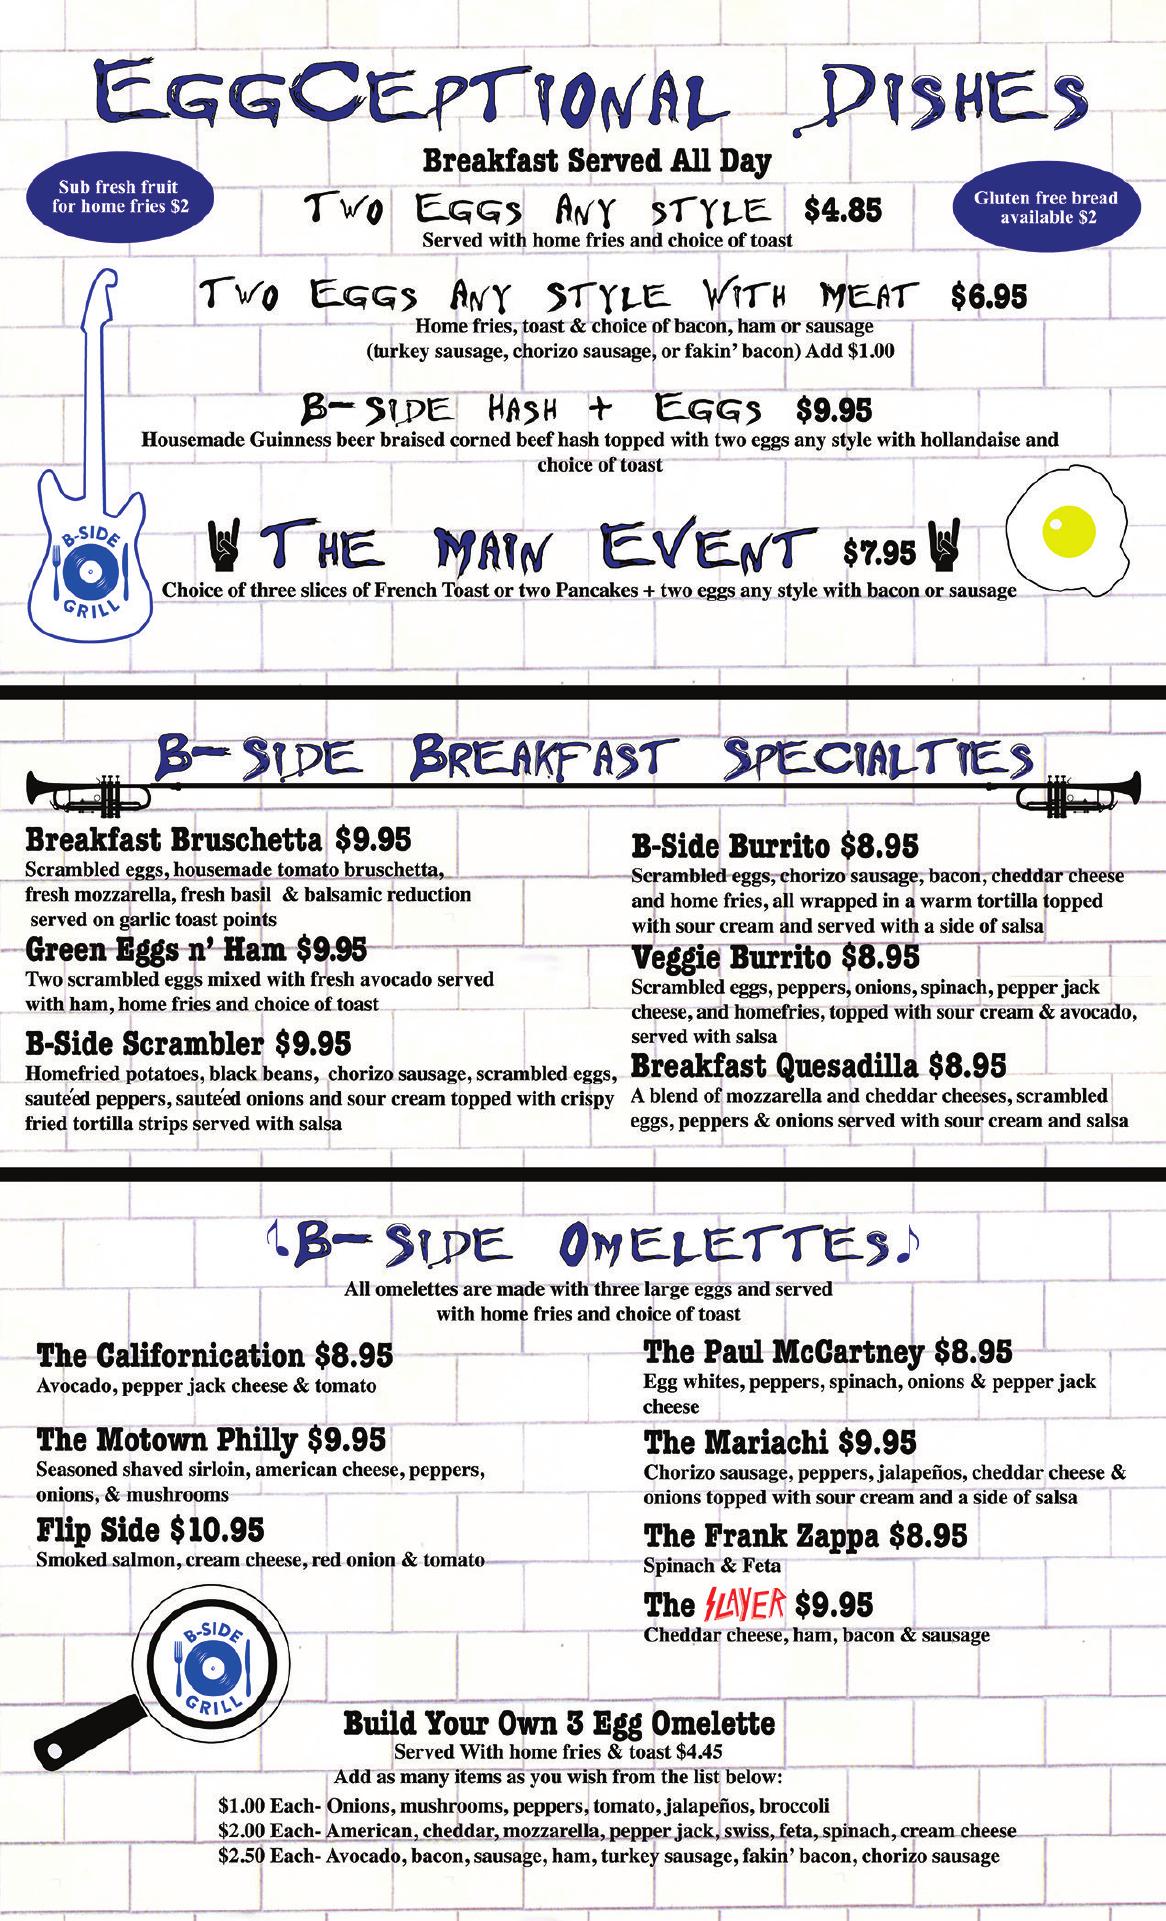 EggCeptional Dishes
Breakfast Served All Day
Sub fresh fruit
for home fries $2
Gluten free bread
available $2
Two Eggs Any style $4.85
Served with home fries and choice of toast
Two Eggs Any style With meat $6.95
Home fries, toast & choice of bacon, ham or sausage
(turkey sausage, chorizo sausage, or fakin' bacon) Add $1.00
B-Side Hash + Eggs $9.95
Housemade Guinness beer braised corned beef hash topped with two eggs any style with hollandaise and
choice of toast
The Main Event $7.95
Choice of three slices of French Toast or two Pancakes + two eggs any style with bacon or sausage
B-SIDE
GRILL
B-Side Breakfast Specialties
Breakfast Bruschetta $9.95
Scrambled eggs, housemade tomato bruschetta,
fresh mozzarella, fresh basil & balsamic reduction
served on garlic toast points
Green Eggs n' Ham $9.95
Two scrambled eggs mixed with fresh avocado served
with ham, home fries and choice of toast
B-Side Scrambler $9.95
Homefried potatoes, black beans, chorizo sausage, scrambled eggs,
sauteéd peppers, sauteéd onions and sour cream topped with crispy
fried tortilla strips served with salsa
B-Side Burrito $8.95
Scrambled eggs, chorizo sausage, bacon, cheddar cheese
and home fries, all wrapped in a warm tortilla topped
with sour cream and served with a side of salsa
Veggie Burrito $8.95
Scrambled eggs, peppers, onions, spinach, pepper jack
cheese, and homefries, topped with sour cream & avocado,
served with salsa
Breakfast Quesadilla $8.95
A blend of mozzarella and cheddar cheeses, scrambled
eggs, peppers & onions served with sour cream and salsa
B-Side Omelettes
All omelettes are made with three large eggs and served
with home fries and choice of toast
The Californication $8.95
Avocado, pepper jack cheese & tomato
The Motown Philly $9.95
Seasoned shaved sirloin, american cheese, peppers,
onions, & mushrooms
Flip Side $10.95
Smoked salmon, cream cheese, red onion & tomato
The Paul McCartney $8.95
Egg whites, peppers, spinach, onions & pepper jack
cheese
The Mariachi $9.95
Chorizo sausage, peppers, jalapeños, cheddar cheese &
onions topped with sour cream and a side of salsa
The Frank Zappa $8.95
Spinach & Feta
The SLAYER $9.95
Cheddar cheese, ham, bacon & sausage
B-SIDE
GRILL
Build Your Own 3 Egg Omelette
Served With home fries & toast $4.45
Add as many items as you wish from the list below:
$1.00 Each- Onions, mushrooms, peppers, tomato, jalapeños, broccoli
$2.00 Each- American, cheddar, mozzarella, pepper jack, swiss, feta, spinach, cream cheese
$2.50 Each- Avocado, bacon, sausage, ham, turkey sausage, fakin' bacon, chorizo sausage